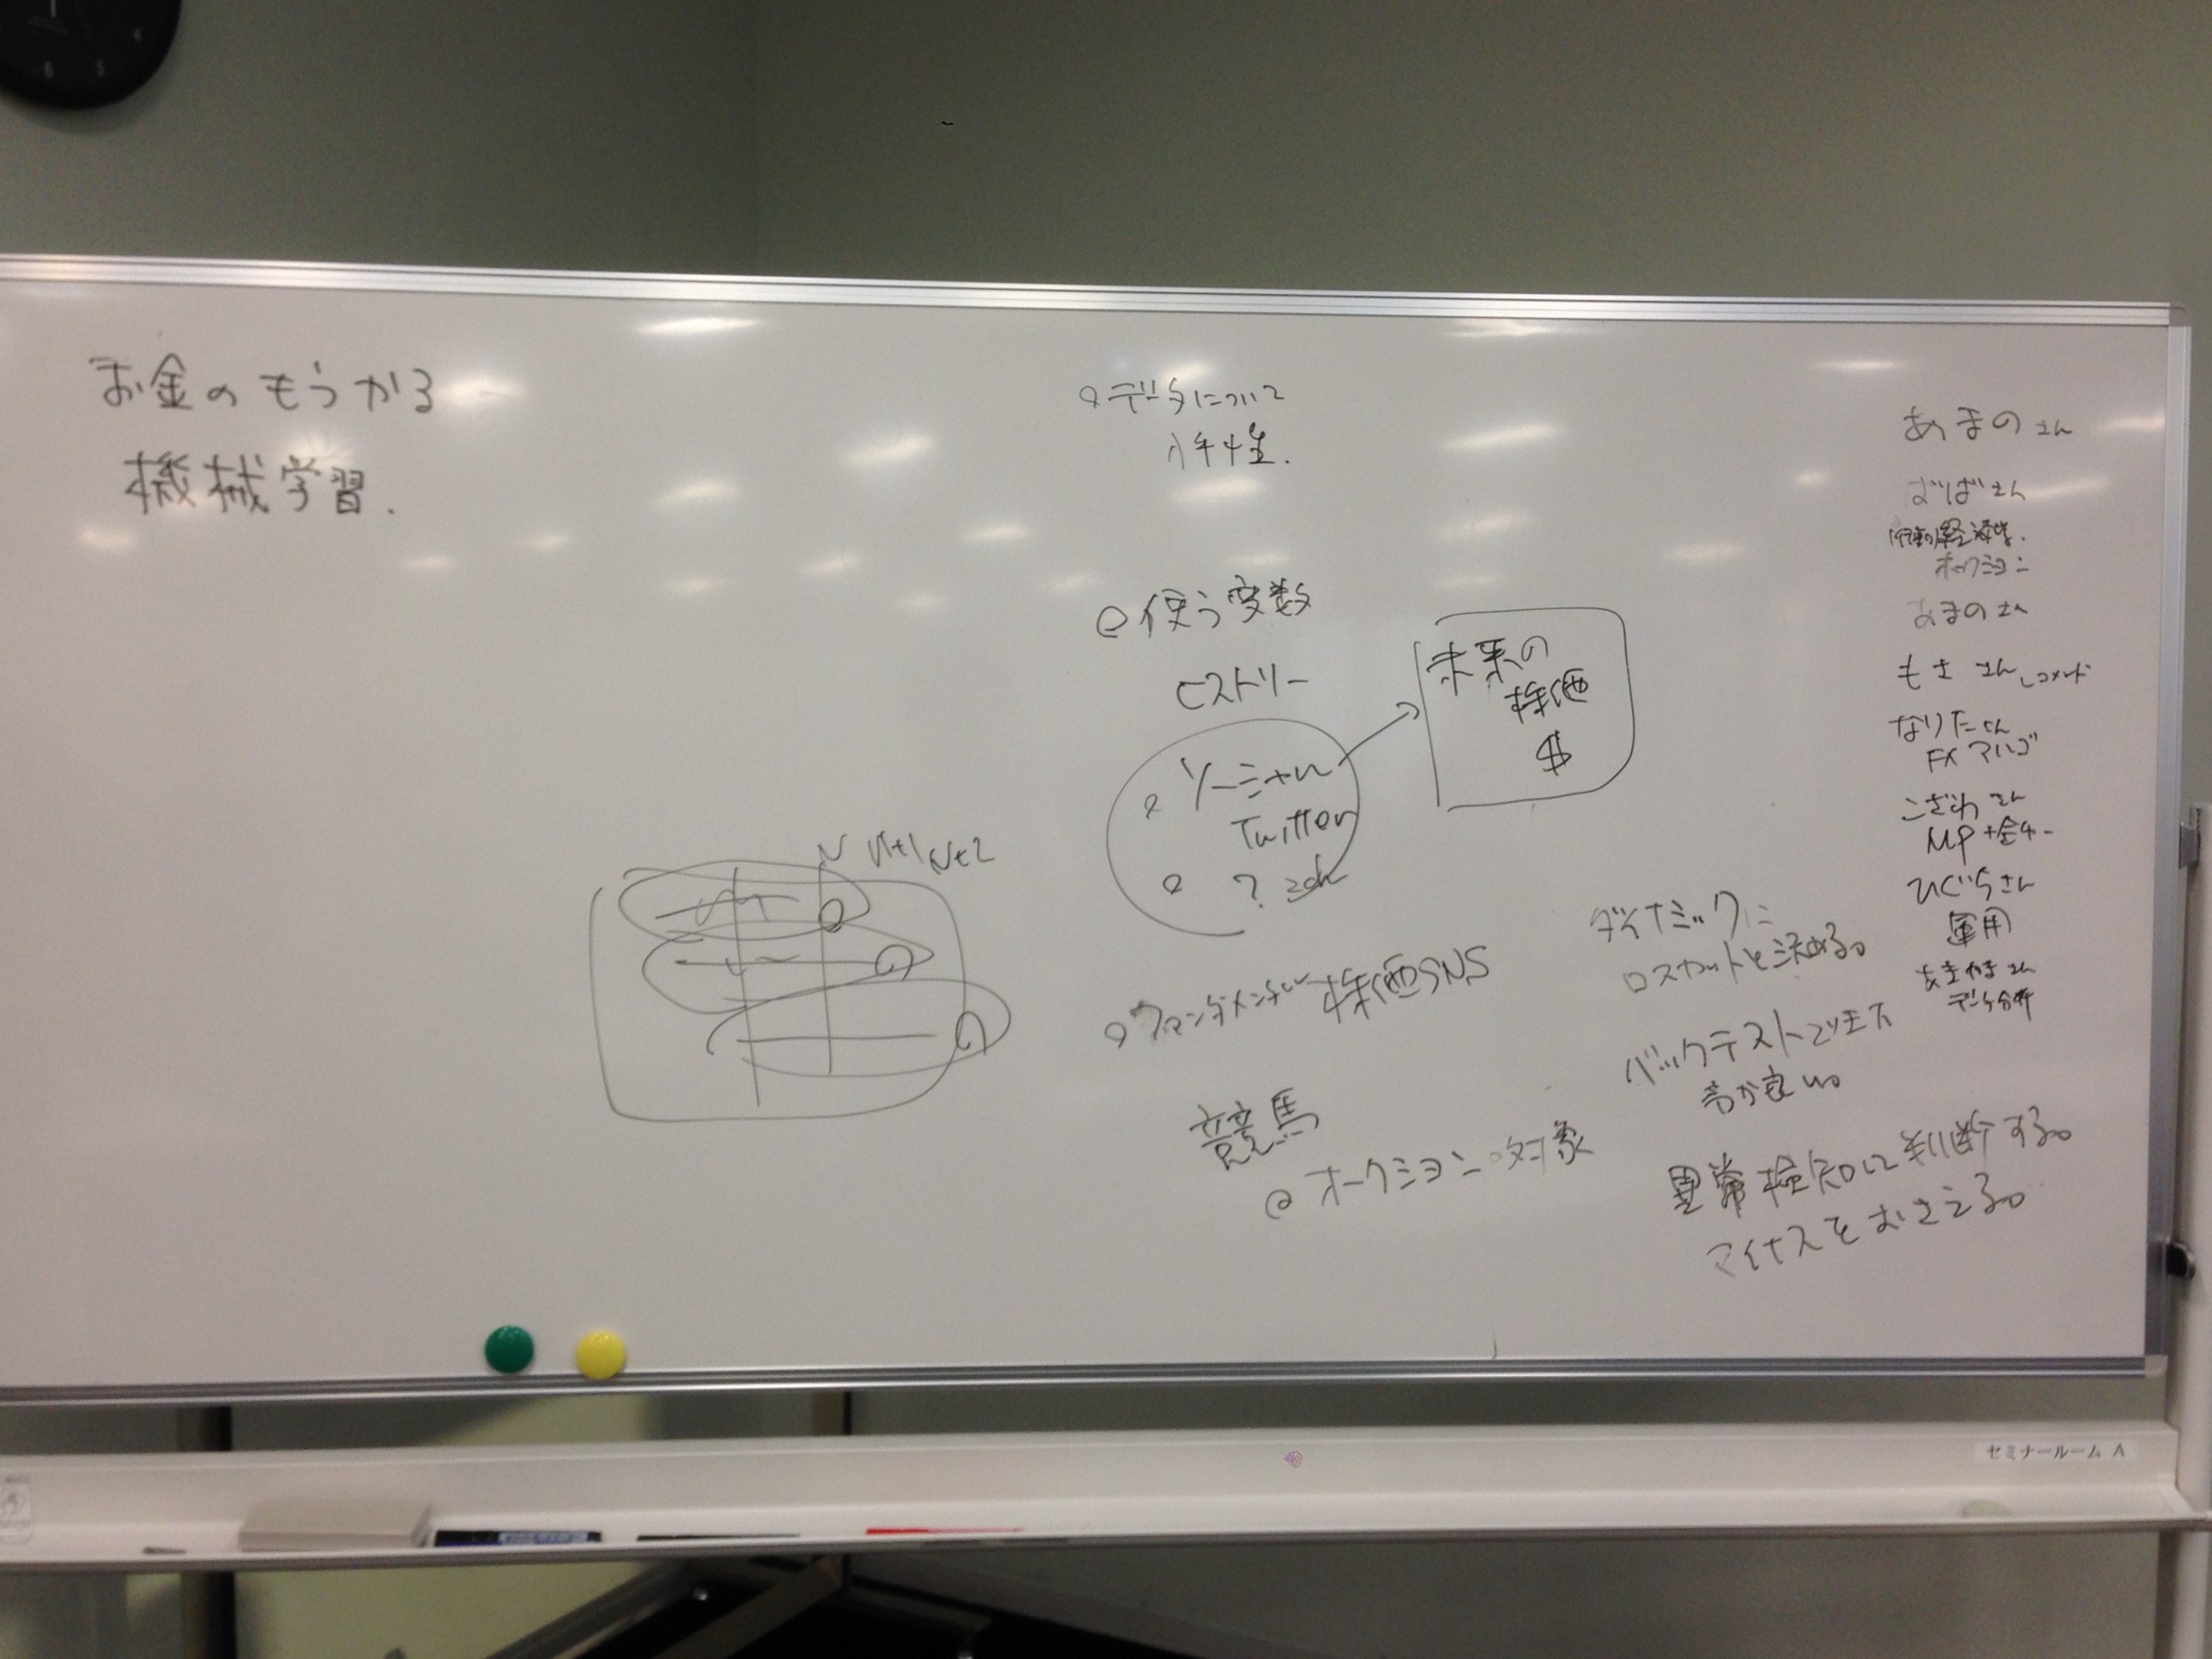 お金のもうかる
機械学習.
データについて
特性.
使う変数
ヒストリー
ソーシャル
Twitter
? 2ch
未来の
株価
$
N N+1 N+2
ファンダメンタル 株価SNS
競馬
オークション 対象
ダイナミックに
ロスカットを決める。
バックテストで
方が良い。
異常検知して判断する。
マイナスをおさえる。
あまのさん
さん
オークション
あまのさん
もささん
なりたさん
FX
こざわさん
ひぐちさん
運用
あきやまさん
データ分析
セミナールーム A
6 5 4